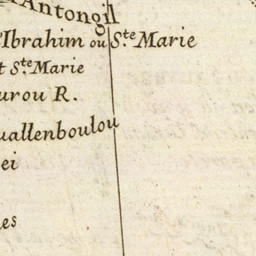 Antongil
Ibrahim ou S.te Marie
t S.te Marie
urou R.
uallenboulou
ei
es